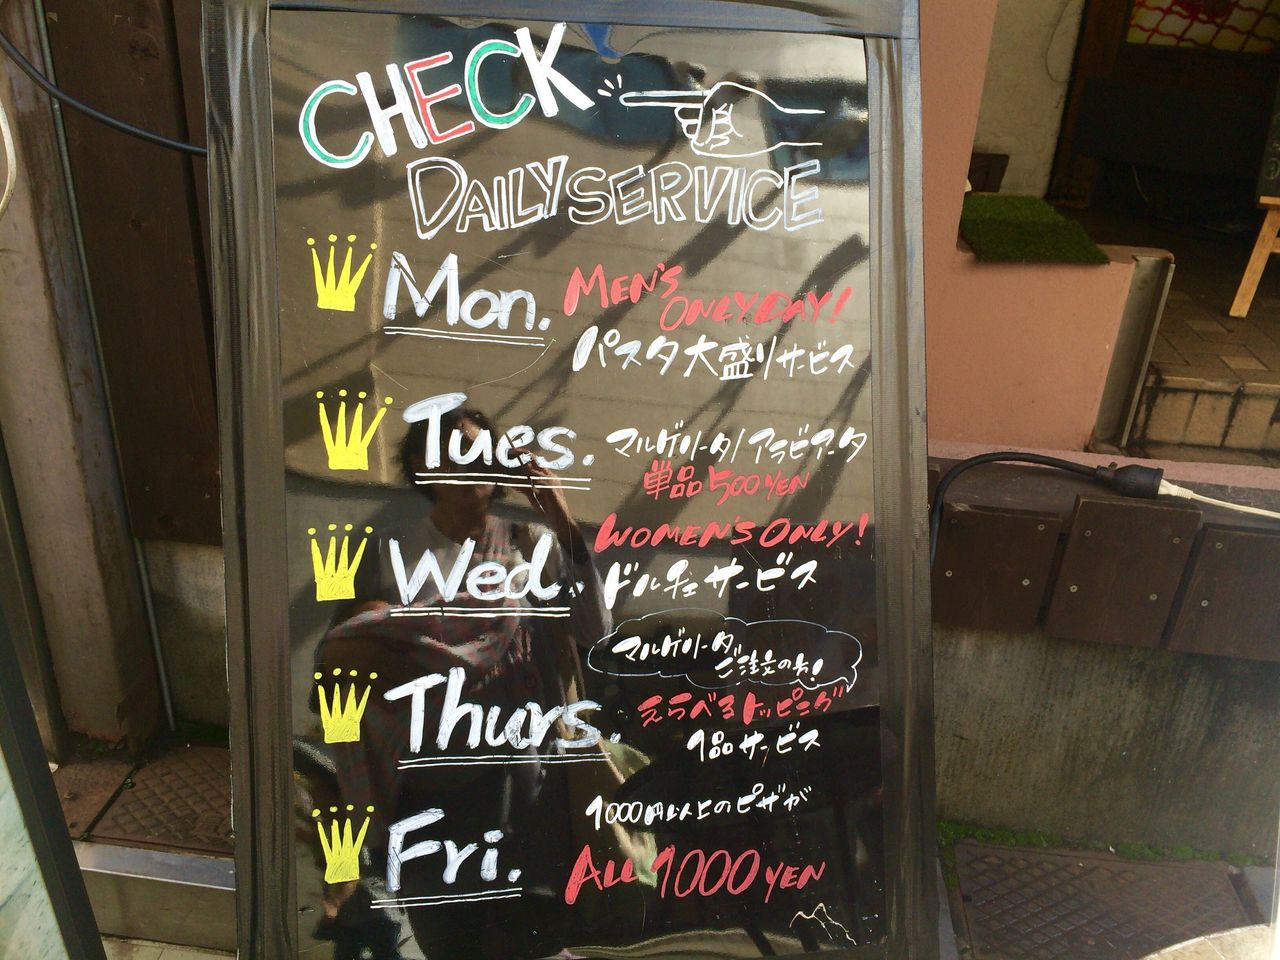 CHECK
DAILY SERVICE
Mon.
MEN'S
ONLY DAY!
パスタ大盛りサービス
Tues.
マルゲリータ/アラビアータ
単品500YEN
Wed.
WOMEN'S ONLY!
ドルチェサービス
Thurs.
マルゲリータ
ご注文の方!
えらべるトッピング
1品サービス
Fri.
1000円以上のピザが
ALL 1000 YEN